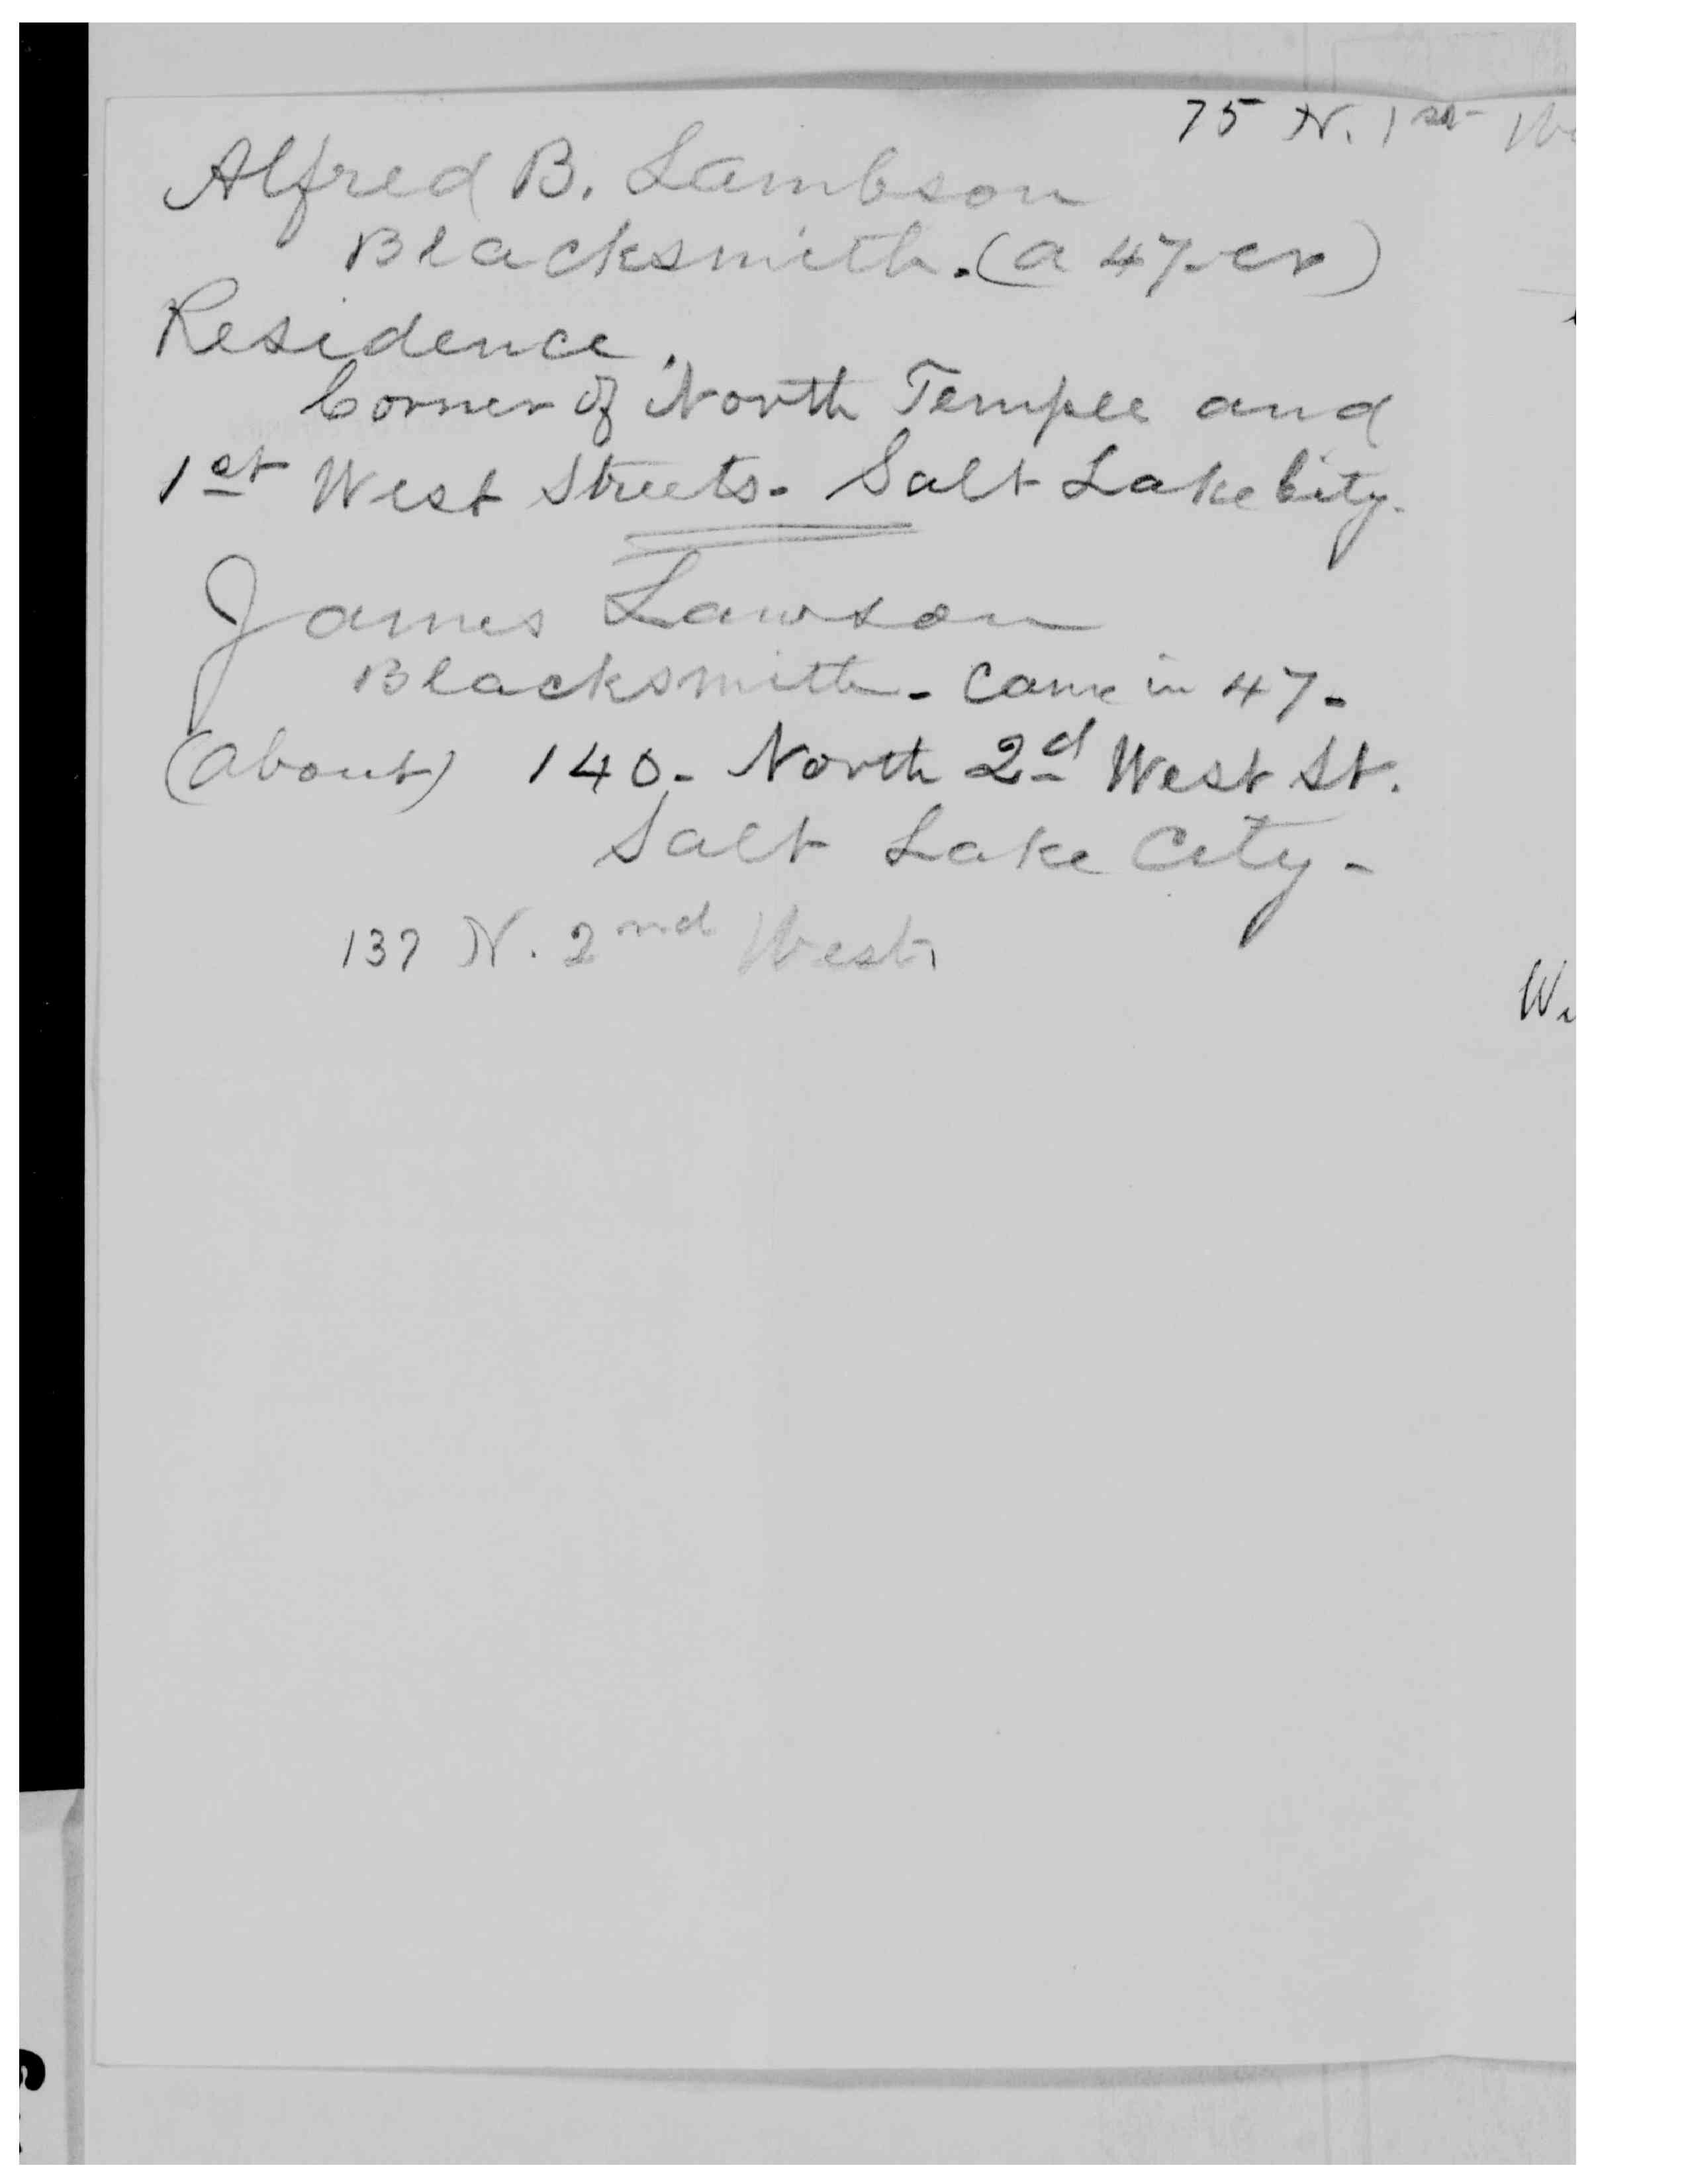 75 N. 1st
Alfred B. Lambson
Blacksmith. (a 47-er)
Residence.
Corner of North Temple and
1st West Streets. Salt Lake City.
James Lawson
Blacksmith - Came in 47 -
(About) 140 - North 2d West St.
Salt Lake City -
137 N. 2nd West